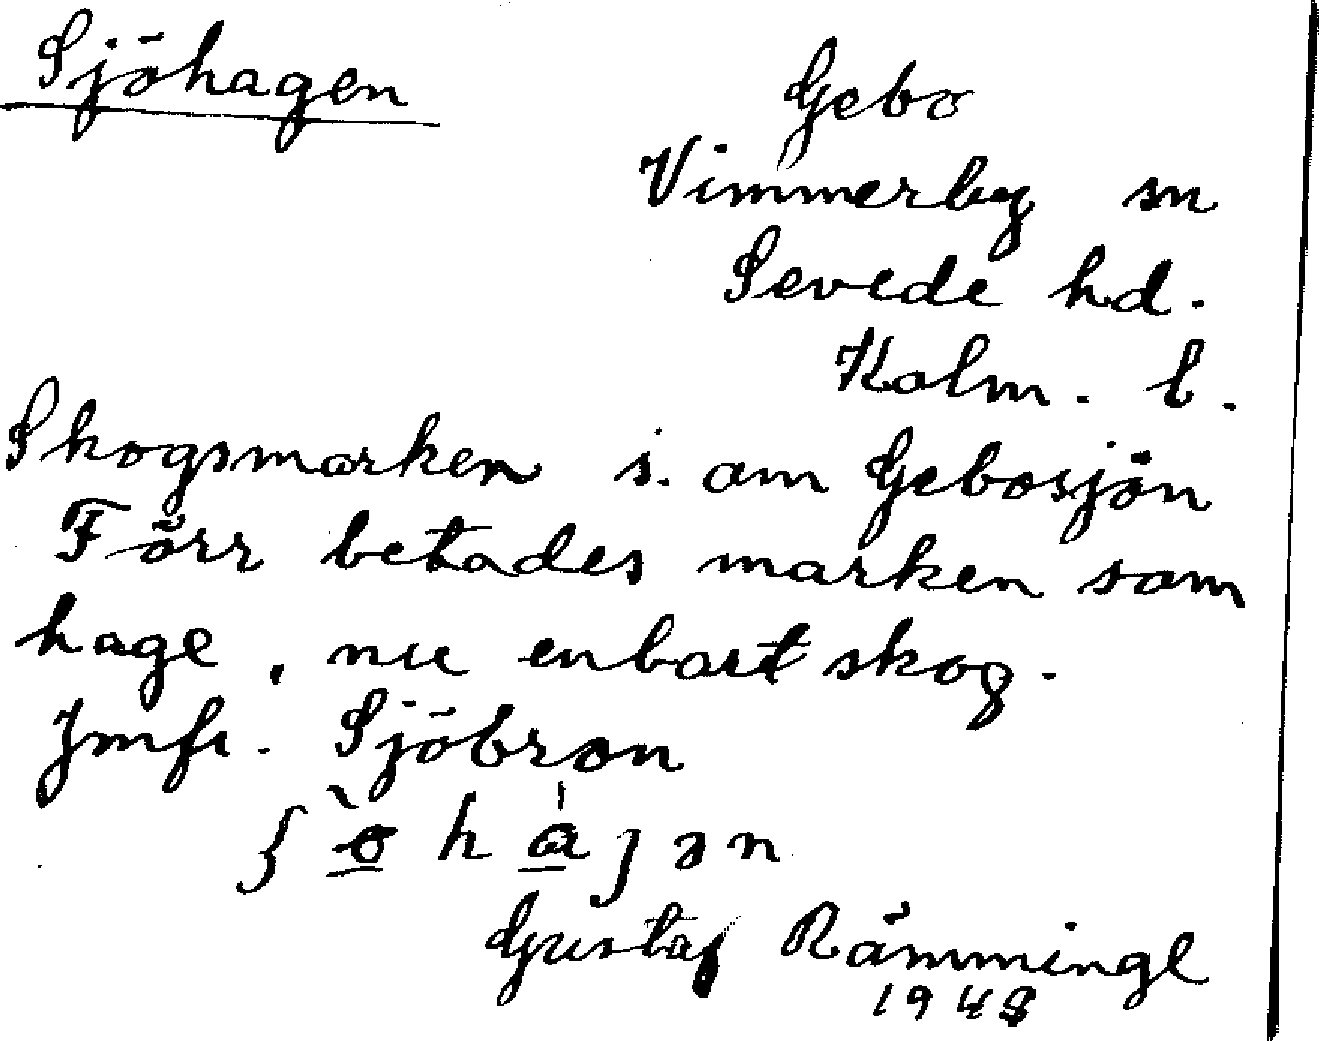 Sjöhagen
Gebo
Vimmerby sn
Sevede hd.
Kalm. l.
Skogsmarken i. om Gebosjön
Förr betades marken som
hage, nu enbart skog.
Jmfr. Sjöbron
Gustaf Rämminge
1948